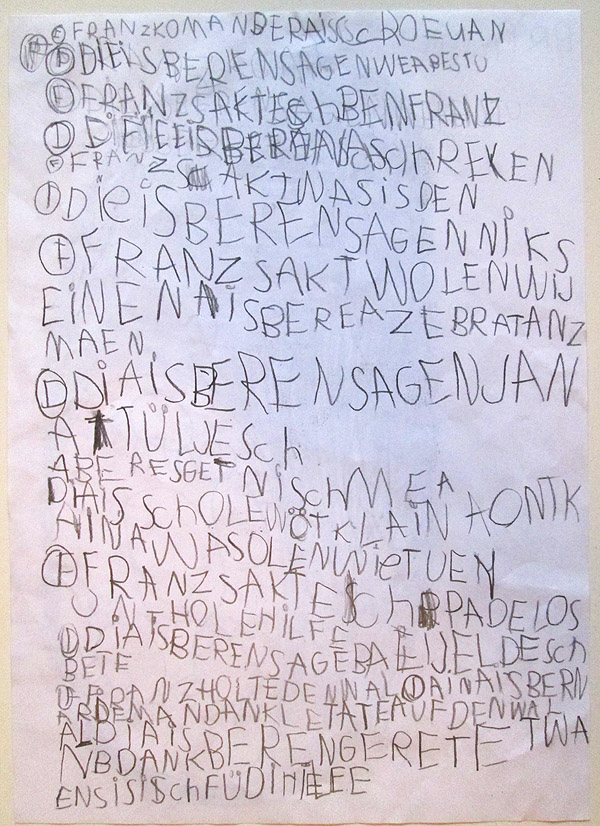 Ⓕ FRANZ KOMAN BERAISSCHOEUAN
Ⓓ DIEISBERENSAGENWEABESTU
Ⓕ FRANZSAKTESCHBENFRANZ
Ⓓ DIEEISBERENSCHREKEN
Ⓕ FRANZSAKTWASISDEN
Ⓓ DIEISBERENSAGENNIKS
Ⓕ FRANZSAKTWOLENWIJ
EINENAISBEREAZEBRATANZ
MAEN
Ⓓ DIAISBERENSAGENJAN
ATÜLJESCH
ABERESGETNISCHMEA
DIAISSCHOLEWÖTKLAINAONTK
HINAWASOLENWIETUEN
Ⓕ FRANZSAKTESCHPADELOS
UNTHOLEHILFE
Ⓓ DIAISBERENSAGEBALEIJELDESCH
BETE
Ⓕ FRANZHOLTEDENNALAINAISBERN
ARDEMANDANKLETATEAUFDENWAL
ALDIAISBERENGERETETWA
NBDANKB
ENSISISCHFÜDIHIEEE